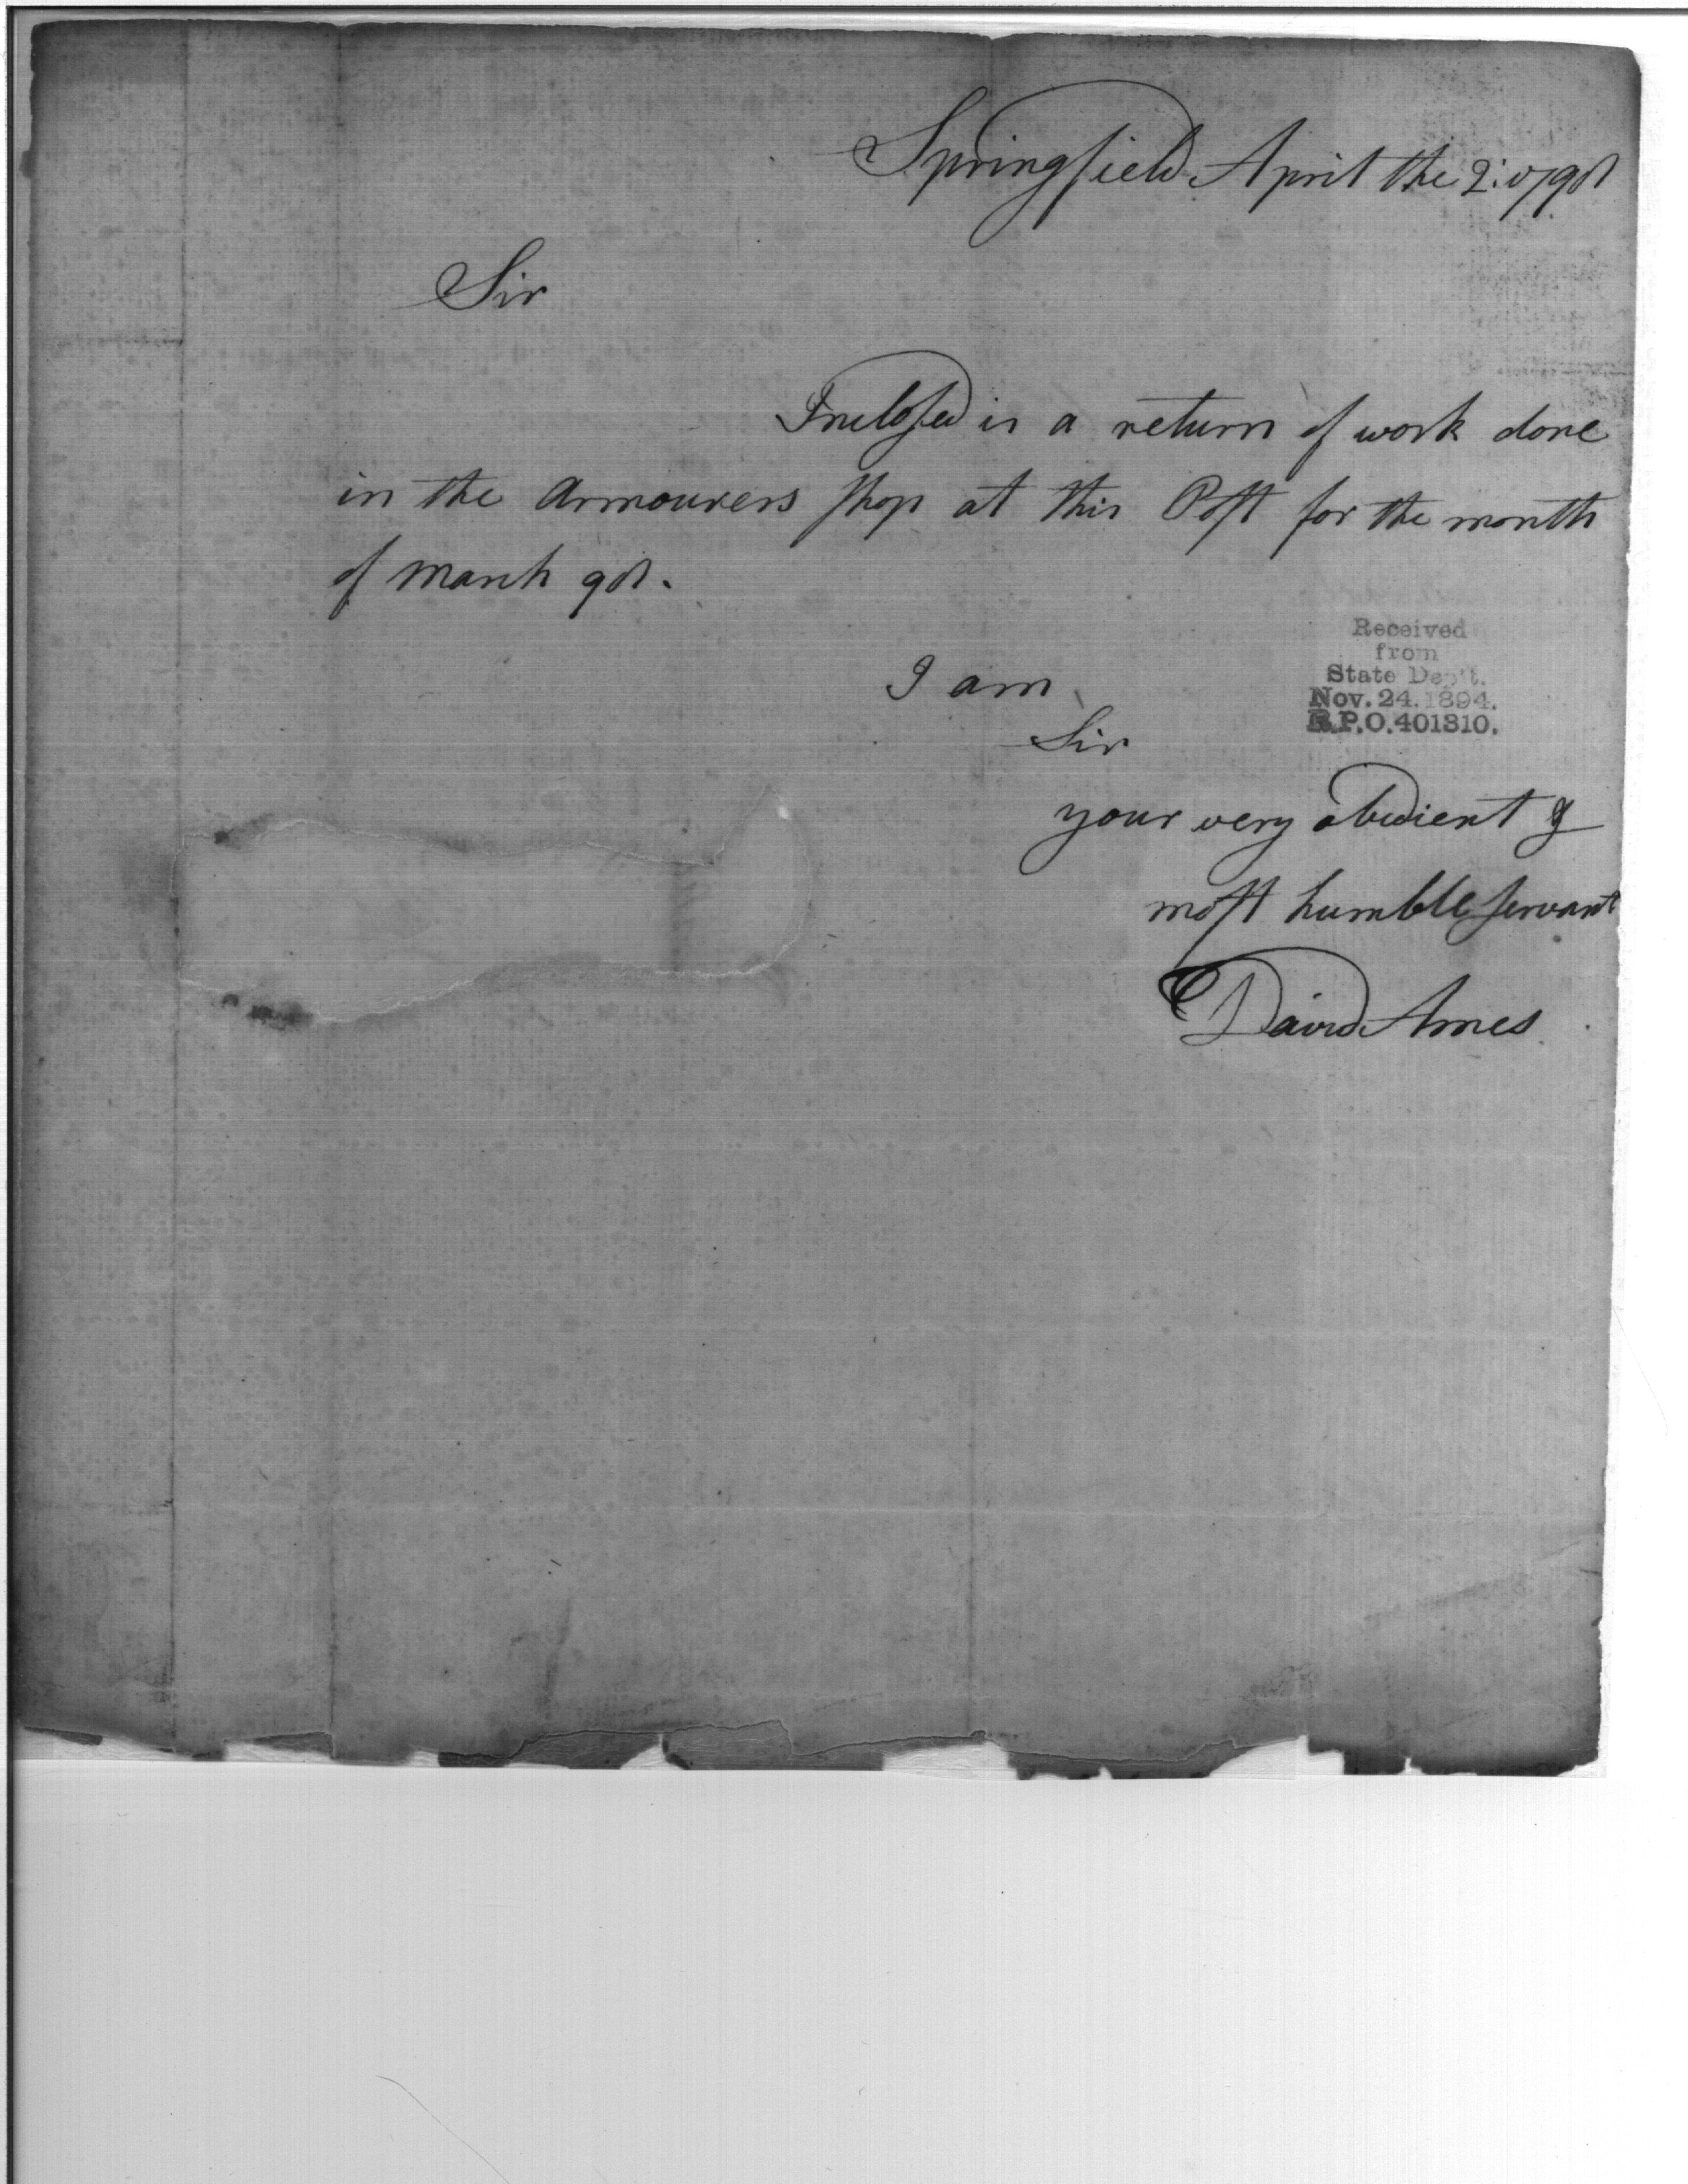 Springfield April the 2: 1798
Sir
Inclosed is a return of work done
in the Armourers shop at this Post for the month
of March 98.
Received
from
State Dep't.
Nov. 24. 1894.
R.P.O. 401310.
I am
Sir
your very obedient &
most humble servant
David Ames